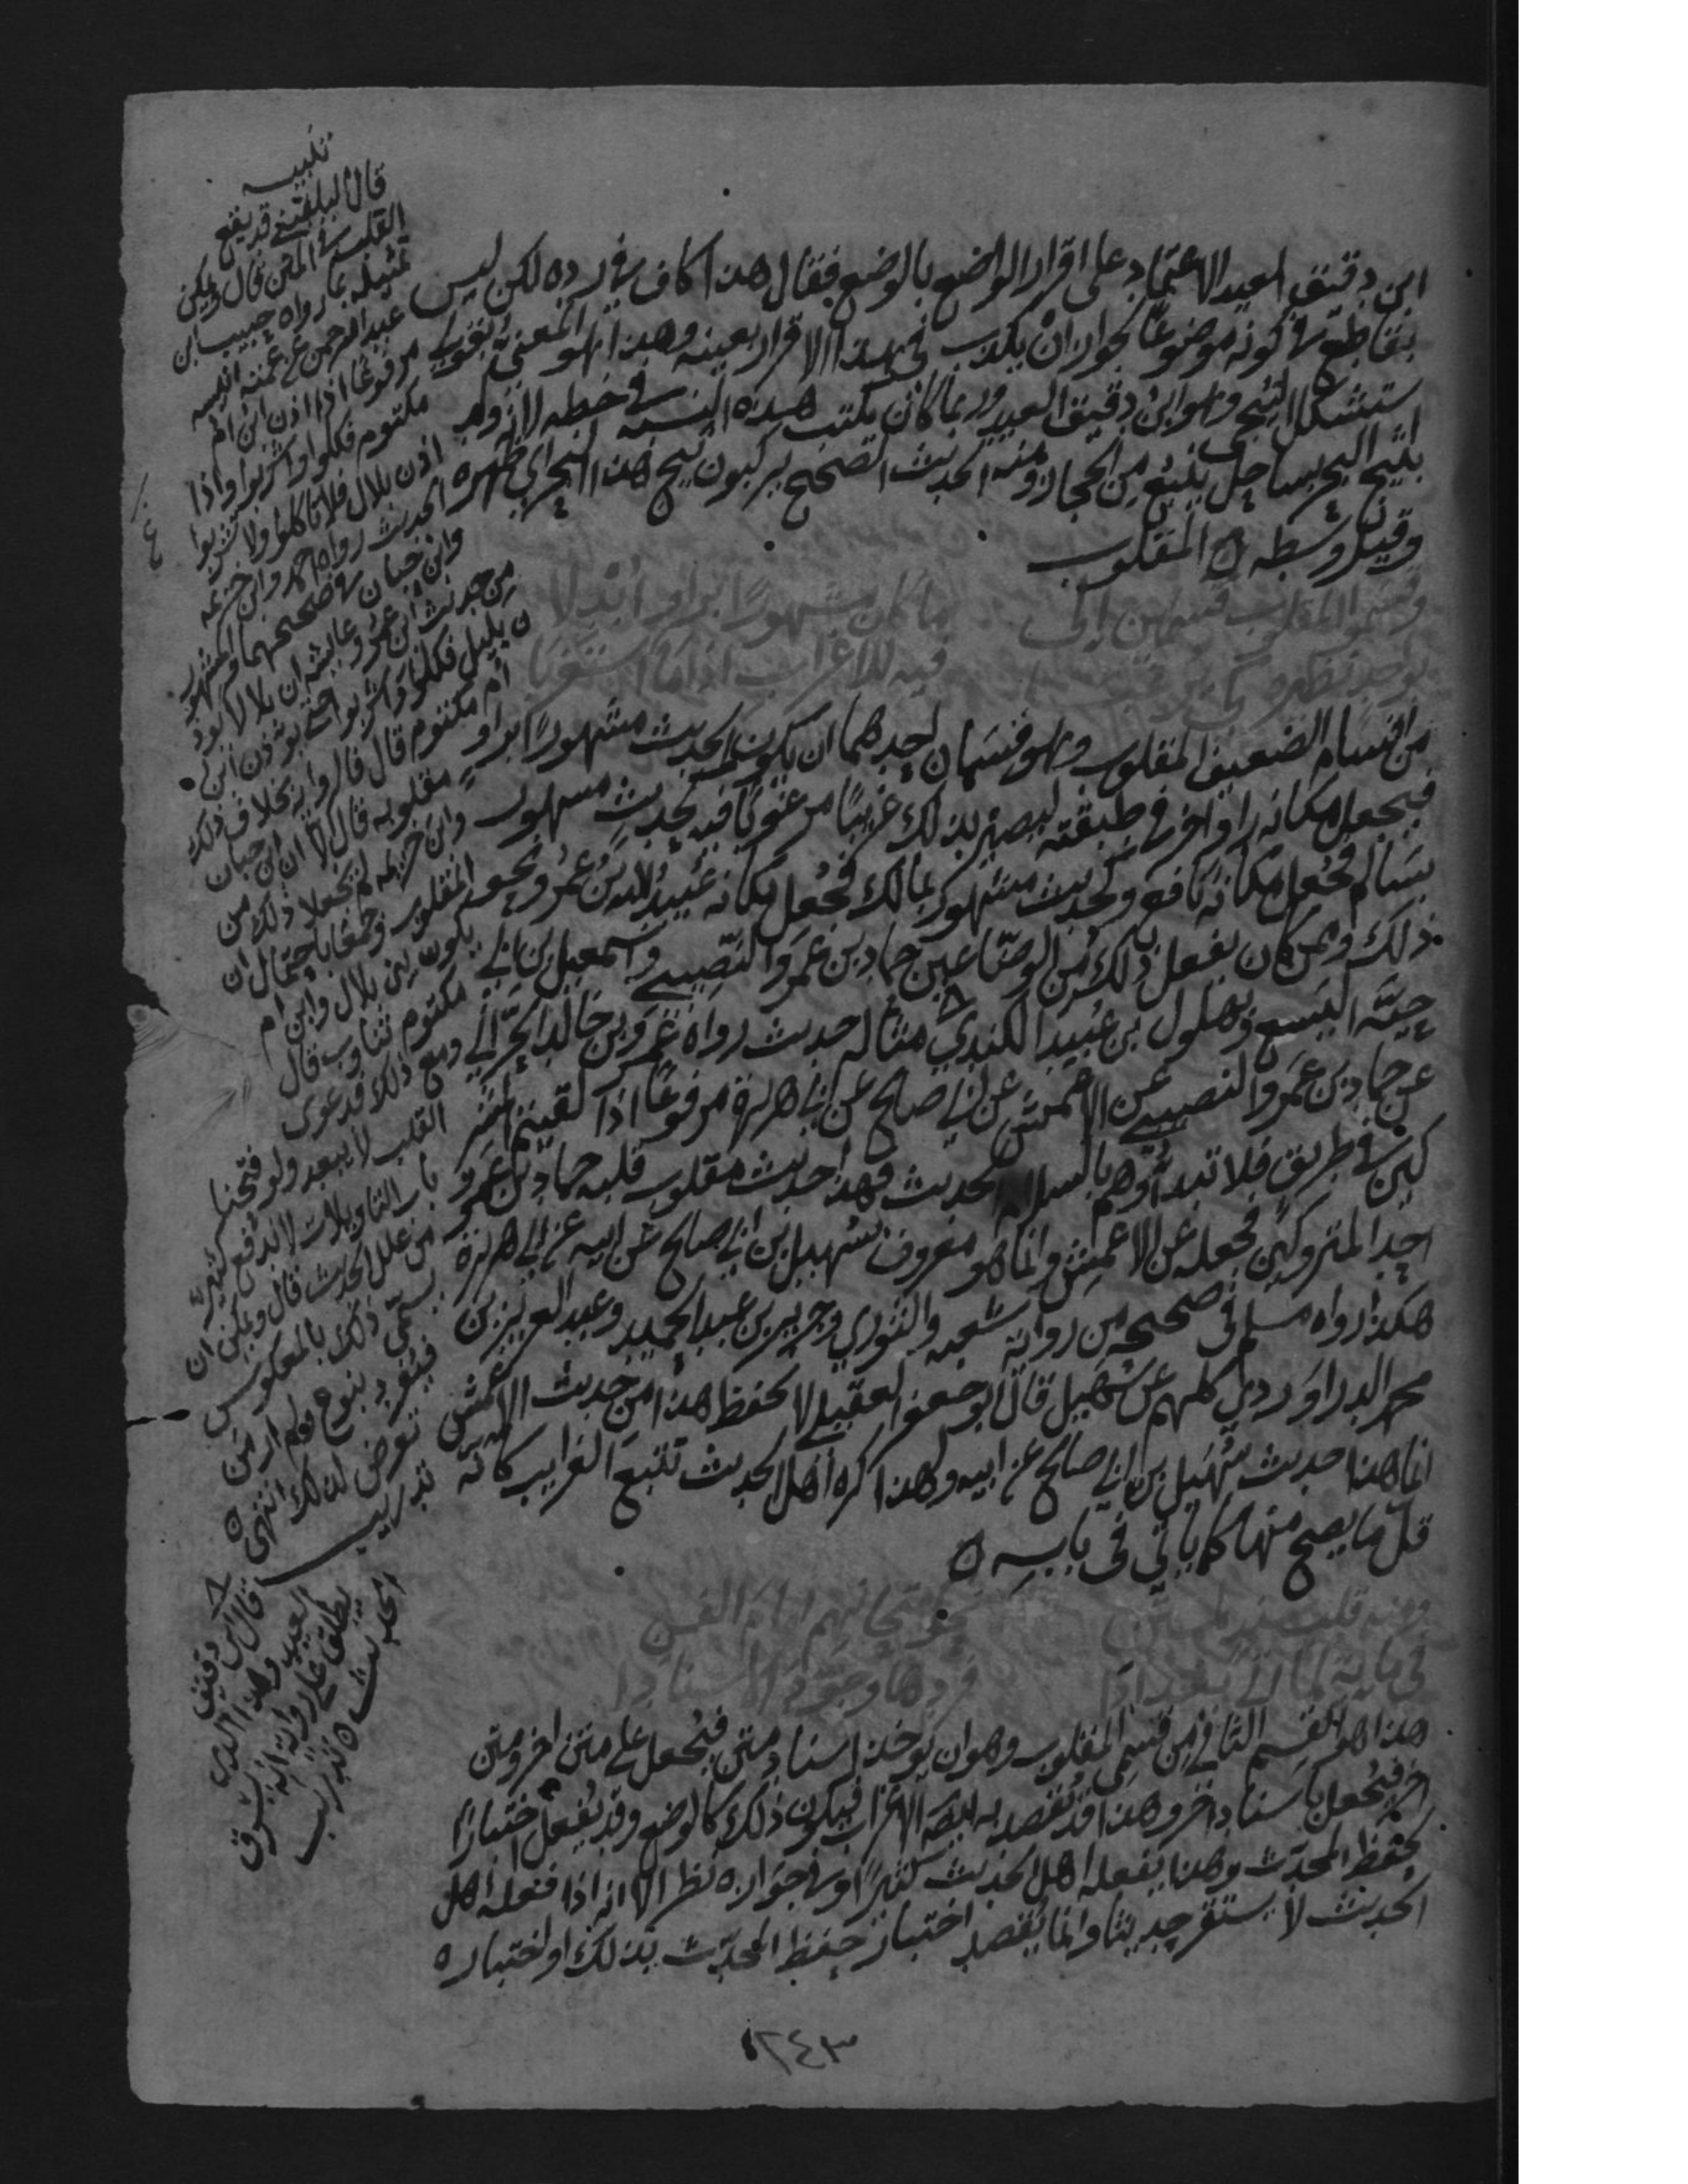 ابن دقيق العيد الاعتماد على اقرار الواضع بالوضع فقال هذا كاف في رده لكن ليس
بقاطع في كونه موضوعا لجواز ان يكذب في هذا الاقرار بعينه وهذا هو المعنى
استشكل الشيخ وهو ابن دقيق العيد وربما كان يكتب هذه النسبة في خطه لانه ولد
بثبج البحر بساحل ينبع من الحجاز ومنه الحديث الصحيح يركبون ثبج هذا البحر اي ظهره
وقيل وسطه ه المقلوب
وقسموا المقلوب قسمين الى ما كان مشهورا براو ابدلا
بواحد نظيره كي يرغبا فيه للاغراب اذا ما استغربا
من اقسام الضعيف المقلوب وهو قسمان احدهما ان يكون الحديث مشهورا براو
فيجعل مكانه راو اخر في طبقته ليصير بذلك غريبا مرغوبا فيه كحديث مشهور
بسالم فجعل مكانه نافع وكحديث مشهور بمالك فجعل مكانه عبيد الله بن عمر ونحو
ذلك وممن كان يفعل ذلك من الوضاعين حماد بن عمرو النصيبي واسمعيل بن ابي
حية اليسع وبهلول بن عبيد الكندي مثاله حديث رواه عمرو بن خالد الحراني
عن حماد بن عمرو النصيبي عن الاعمش عن ابي صالح عن ابي هريرة مرفوعا اذا لقيتم المشر
كين في طريق فلا تبدأوهم بالسلام الحديث فهذا حديث مقلوب قلبه حماد بن عمرو
احد المتروكين فجعله عن الاعمش وانما هو معروف بسهيل بن ابي صالح عن ابيه عن ابي هريرة
هكذا رواه مسلم في صحيحه من رواية شعبه والثوري وجرير بن عبد الحميد وعبد العزيز بن
محمد الدراوردي كلهم عن سهيل قال ابو جعفر العقيلي لا يحفظ هذا من حديث الاعمش
انما هذا حديث سهيل بن ابي صالح عن ابيه ولهذا كره اهل الحديث تتبع الغرايب فانه
قل ما يصح منها كما ياتي في بابه ه
ومنه قلب سند لمتن نحو امتحانهم امام الفن
في ماية لما اتى بغدادا فردها وجود الاسنادا
هذا هو القسم الثاني من قسمي المقلوب وهو ان يوخذ اسناد متن فيجعل على متن اخر ومتن
هذا فيجعل باسناد اخر وهذا قد يقصد به ايضا الاغراب فيكون ذلك كالوضع وقد يفعل اختبارا
لحفظ المحدث وهذا يفعله اهل الحديث كثيرا وفي جوازه نظر الا انه اذا فعله اهل
الحديث لا يستقر حديثا وانما يقصد اختبار حفظ المحدث بذلك او اختباره
١٢٤٣
تنبيه
قال البلقيني قد يقع
القلب في المتن قال ويمكن
تمثيله بما رواه حبيب ابن
عبد الرحمن عن عمته انيسه
مرفوعا اذا اذن ابن ام
مكتوم فكلوا واشربوا واذا
اذن بلال فلا تاكلوا ولا تشربوا
الحديث رواه احمد وابن خزيمه
وابن حبان في صحيحهما والمشهور
من حديث ابن عمر وعايشه ان بلالا يوذ
ن بليل فكلوا واشربوا حتى يوذن ابن
ام مكتوم قال فالرواية بخلاف ذلك
مقلوبه قال الا ان ابن حبان
وابن خزيمه لم يجعلا ذلك من
المقلوب وجمعا باحتمال ان
يكون بين بلال وابن ام
مكتوم تناوب قال
ومع ذلك فدعوى
القلب لا تبعد ولو فتحنا
باب التاويلات لاندفع كثير
من علل الحديث قال ويمكن ان
يسمى ذلك بالمعكوس
فيفرد بنوع ولم ار من
تعرض لذلك انتهى ه
تدريب
قال ابن دقيق
العيد وهذا الذي
يطلق على رواته انه يسرق
الحديث ه تدريب